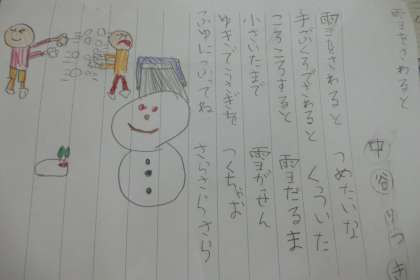 雪をさわると
中谷
雪をさわると つめたいな
手ぶくろでさわると くっついた
ころころすると 雪だるま
小さいたまで 雪がせん
ゆきでうさぎを つくちゃお
さらさらさらさら